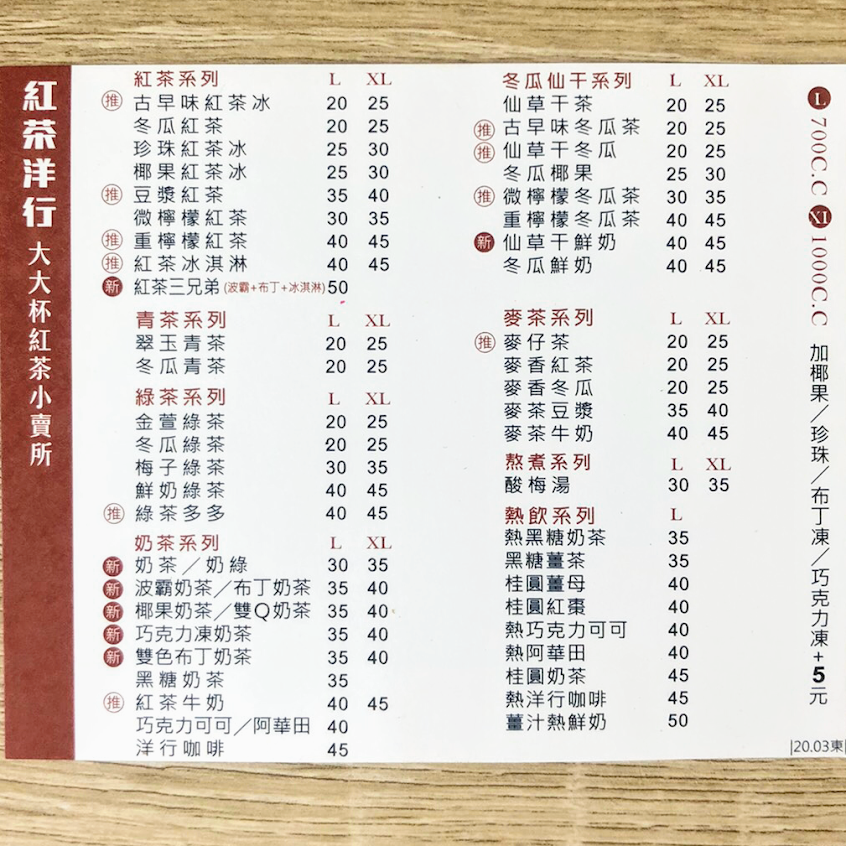 紅茶洋行 大大杯紅茶小賣所
紅茶系列 L XL
推 古早味紅茶冰 20 25
冬瓜紅茶 20 25
珍珠紅茶冰 25 30
椰果紅茶冰 25 30
推 豆漿紅茶 35 40
微檸檬紅茶 30 35
推 重檸檬紅茶 40 45
推 紅茶冰淇淋 40 45
新 紅茶三兄弟(波霸+布丁+冰淇淋) 50
青茶系列 L XL
翠玉青茶 20 25
冬瓜青茶 20 25
綠茶系列 L XL
金萱綠茶 20 25
冬瓜綠茶 20 25
梅子綠茶 30 35
鮮奶綠茶 40 45
推 綠茶多多 40 45
奶茶系列 L XL
新 奶茶／奶綠 30 35
新 波霸奶茶／布丁奶茶 35 40
新 椰果奶茶／雙Q奶茶 35 40
新 巧克力凍奶茶 35 40
新 雙色布丁奶茶 35 40
黑糖奶茶 35
推 紅茶牛奶 40 45
巧克力可可／阿華田 40
洋行咖啡 45
冬瓜仙干系列 L XL
仙草干茶 20 25
推 古早味冬瓜茶 20 25
推 仙草干冬瓜 20 25
冬瓜椰果 25 30
推 微檸檬冬瓜茶 30 35
重檸檬冬瓜茶 40 45
新 仙草干鮮奶 40 45
冬瓜鮮奶 40 45
麥茶系列 L XL
推 麥仔茶 20 25
麥香紅茶 20 25
麥香冬瓜 20 25
麥茶豆漿 35 40
麥茶牛奶 40 45
熬煮系列 L XL
酸梅湯 30 35
熱飲系列 L
熱黑糖奶茶 35
黑糖薑茶 35
桂圓薑母 40
桂圓紅棗 40
熱巧克力可可 40
熱阿華田 40
桂圓奶茶 45
熱洋行咖啡 45
薑汁熱鮮奶 50
L 700C.C XL 1000C.C 加椰果／珍珠／布丁凍／巧克力凍+5元
|20.03東|